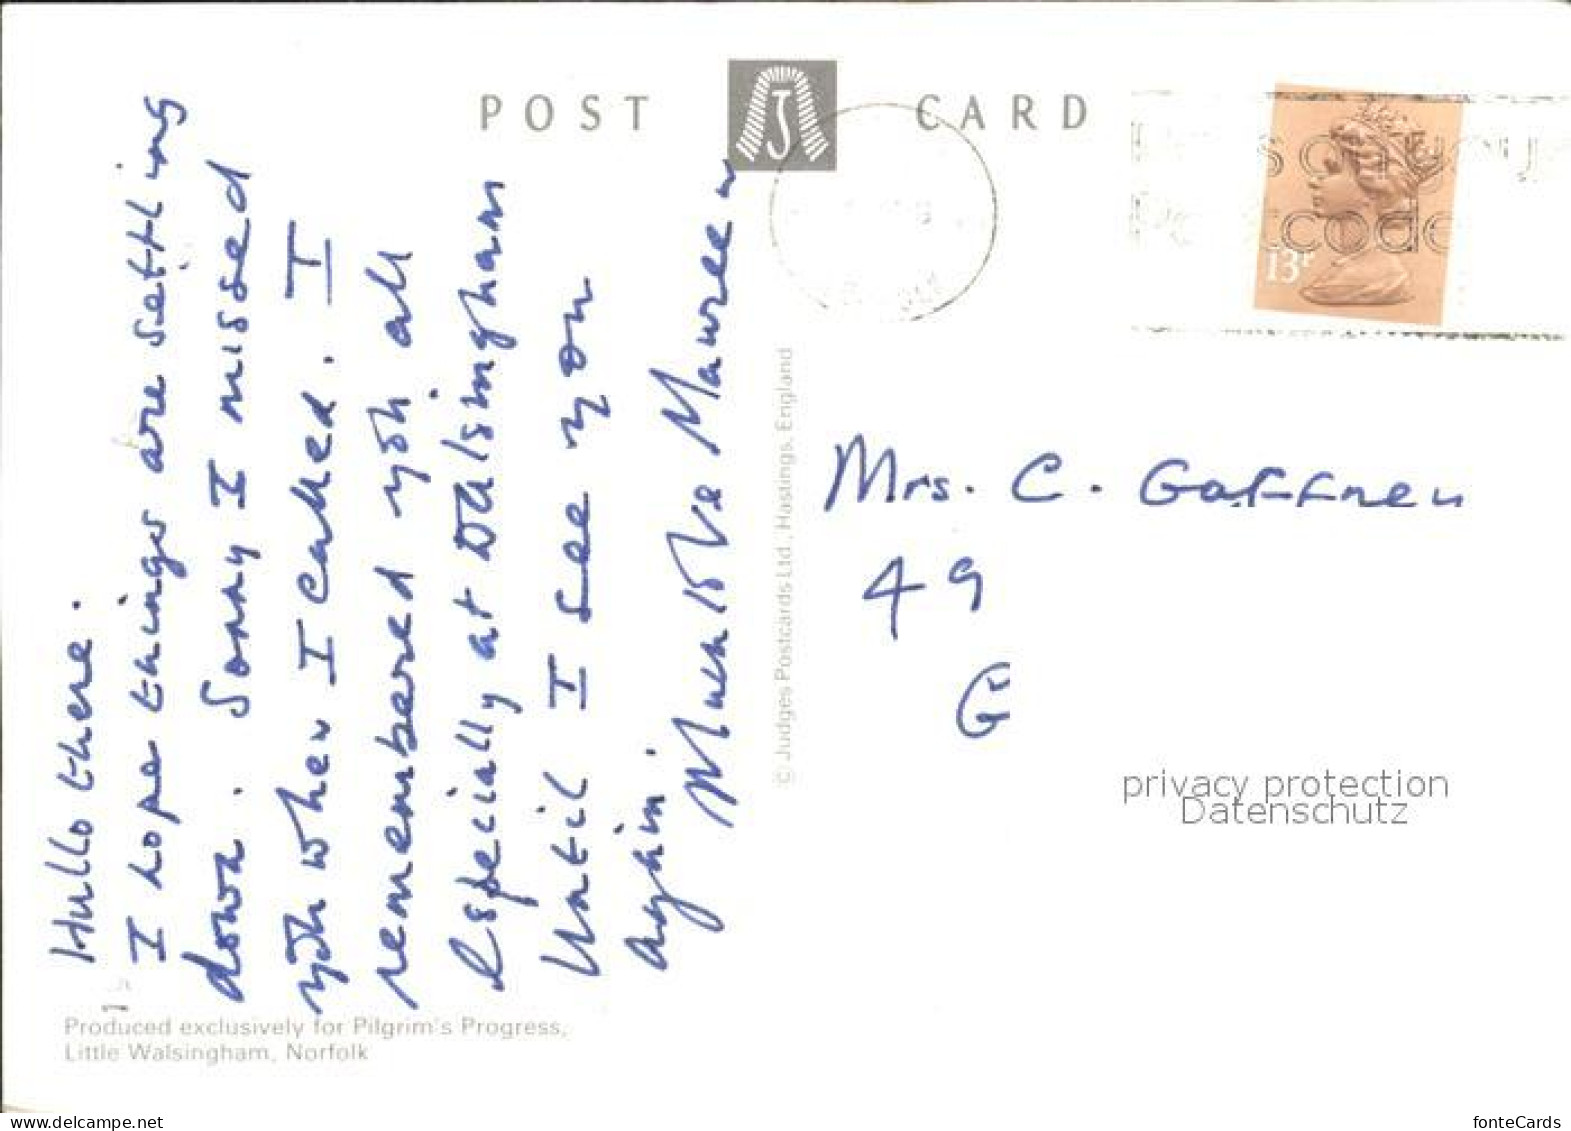 POST CARD
Hullo there.
I hope things are settling
down. Sorry I missed
you when I called. I
remembered you all
especially at Walsingham
Until I see you
again.
Much love Maureen
Produced exclusively for Pilgrim's Progress,
Little Walsingham, Norfolk
© Judges Postcards Ltd., Hastings, England
13P
code
Mrs. C. Gaffney
49
G
privacy protection
Datenschutz
www.delcampe.net
fonteCards